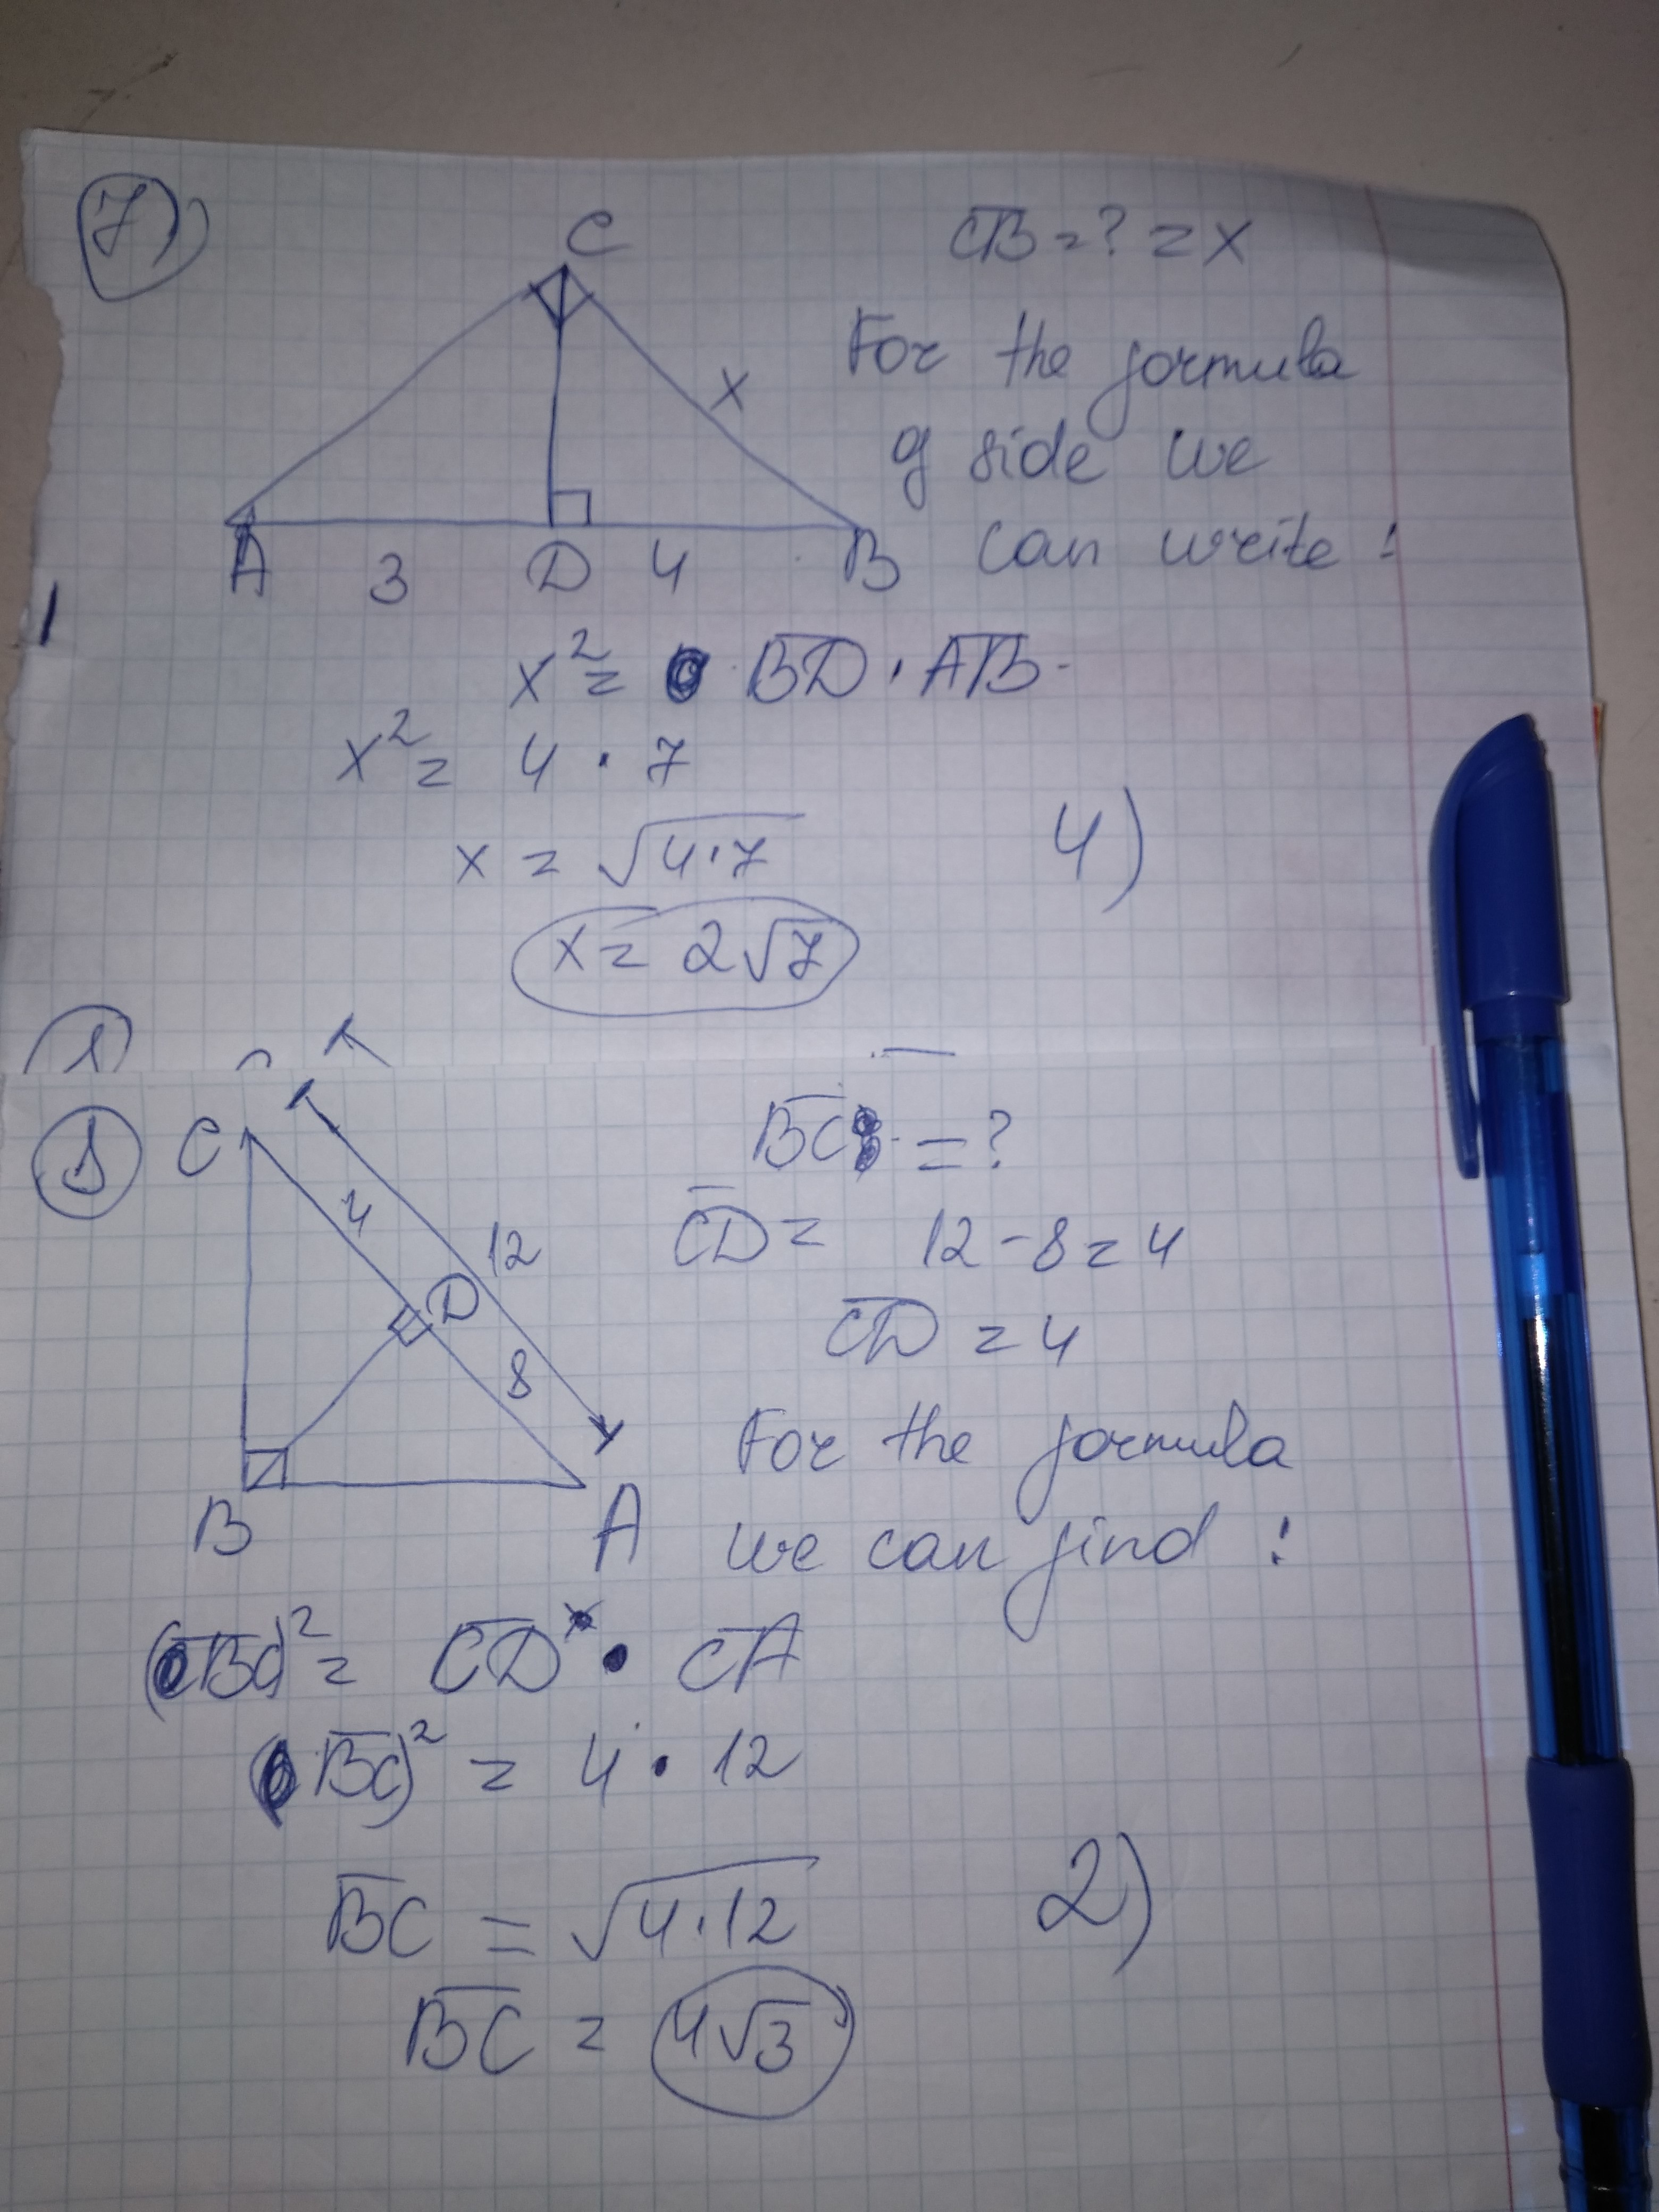 7)
C
CB = ? = x
For the formula
of side we
can write :
x
A 3 D 4 B
x² = BD · AB
x² = 4 · 7
x = √4·7
4)
x = 2√7
C
4
12
D
8
B A
BC = ?
CD = 12 - 8 = 4
CD = 4
For the formula
we can find :
(BC)² = CD · CA
(BC)² = 4 · 12
BC = √4·12
2)
BC = 4√3